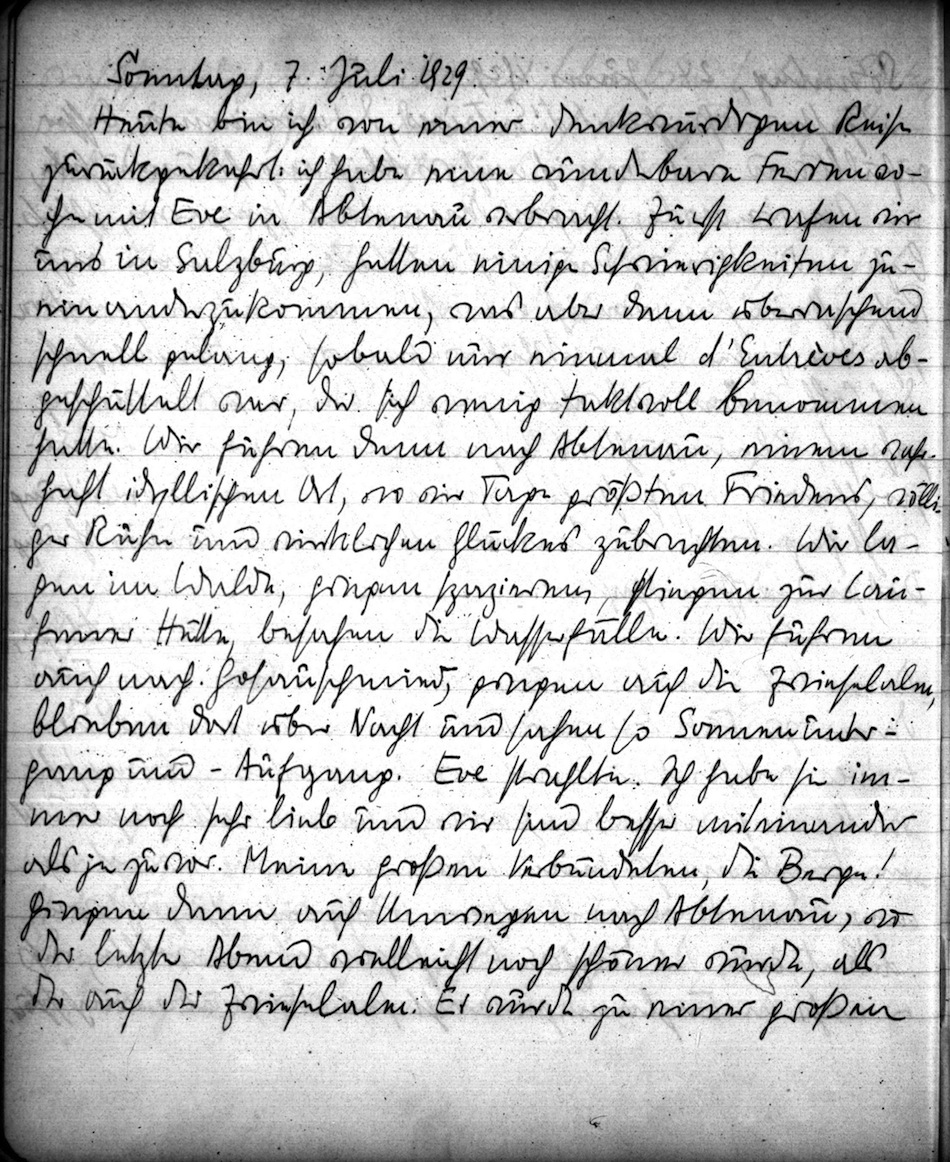 Sonntag, 7. Juli 1929.
Heute bin ich von einer denkwürdigen Reise
zurückgekehrt: ich habe eine wunderbare Ferienwo-
che mit Eve in Abtenau verbracht. Zuerst trafen wir
uns in Salzburg, hatten einige Schwierigkeiten zu-
einanderzukommen, was aber dann überraschend
schnell gelang, sobald nur einmal d'Entrèves ab-
geschüttelt war, der sich wenig taktvoll benommen
hatte. Wir fuhren dann nach Abtenau, einem
haft idyllischen Ort, wo wir Tage größten Friedens, völli-
ger Ruhe und wirklichen Glückes zubrachten. Wir la-
gen im Walde, gingen spazieren, stiegen zur Lau-
fener Hütte, besahen die Wasserfälle. Wir fuhren
auch nach Gosauschmied, gingen auf die Zwieselalm,
blieben dort über Nacht und sahen so Sonnenunter-
gang und -Aufgang. Eve strahlte. Ich habe sie im-
mer noch sehr lieb und wir sind besser miteinander
als je zuvor. Meine großen Verbündeten, die Berge!
Gingen dann auf Umwegen nach Abtenau, wo
der letzte Abend vielleicht noch schöner wurde, als
der auf der Zwieselalm. Er wurde zu einer großen